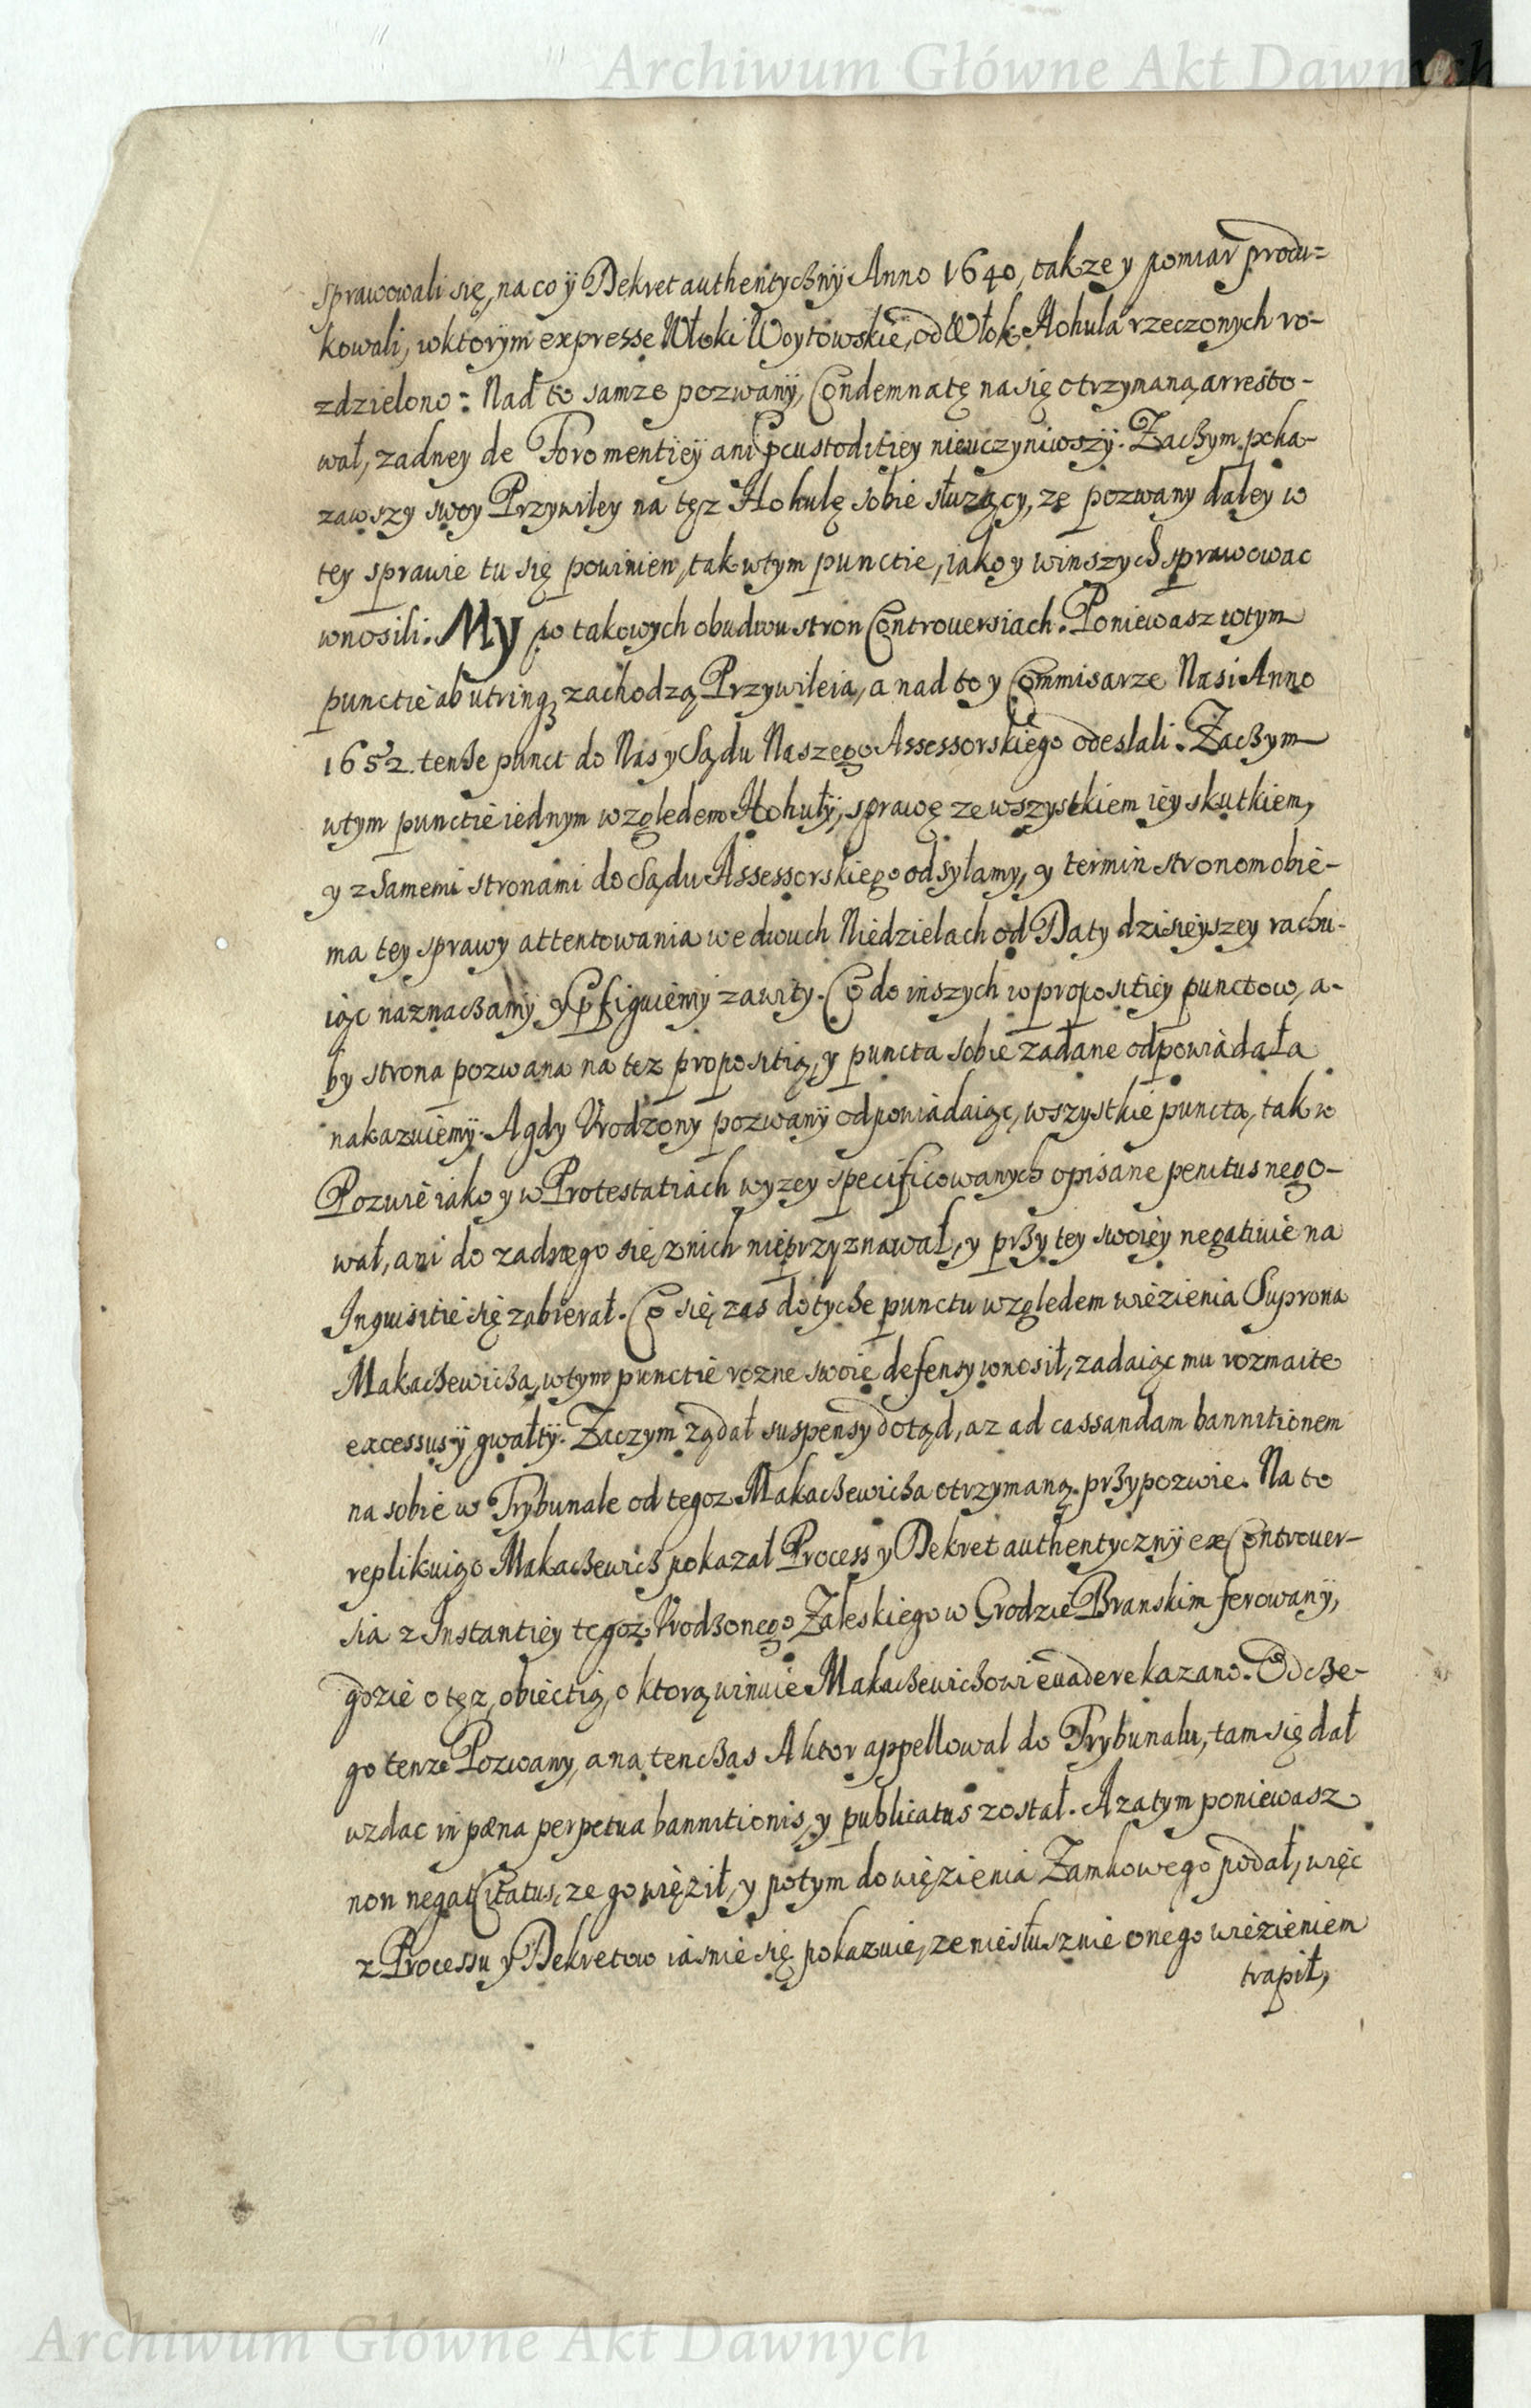 Archiwum Główne Akt Dawnych
sprawowali się, na co ÿ Dekret authentychnÿ Anno 1640, takze y pomiar produ=
kowali, wktorÿm expresse Włoki Woytowskie, od Włok Hohula rzeczonych ro-
zdzielono: Nad to samze pozwanÿ, Condemnatę nasię otrzymaną arresto-
wał, zadney de Foro mentiey ani pcustoditiey nieuczyniwszÿ. Zachym poka-
zawszy swoy Przywiley na tęz Hohulę sobie słuzący, ze pozwany daley w
tey sprawie tu się powinien, tak wtym punctie, iako y winszych sprawowac
wnosili. My po takowych obudwu stron Controuersiach. Poniewasz wtym
punctie ab utrinq; zachodzą Przywileia, a nad to y Commisarze Nasi Anno
1652. tenze punct do Nas y Sądu Naszego Assessorskiego odeslali. Zachym
wtym punctie iednym względem Hohułÿ, sprawę ze wszystkiem iey skutkiem,
y z samemi stronami do Sądu Assessorskiego odsyłamy, y termin stronom obie-
ma tey sprawy attentowania we dwuch Niedzielach od Daty dzisieyszey rachu-
iąc naznaczamÿ y pfiguiemy zawity. Co do inszych w propositiey punctow, a-
by strona pozwana na tez propositią, y puncta sobie załane odpowiadała
nakazuiemÿ. A gdy Vrodzony pozwanÿ odpowiadaiąc, wszystkie puncta, tak w
Pozwie iako y w Protestatiach wyzey specificowanych opisane penitus nego-
wał, ani do zadnego się znich nieprzyznawał, y przy tey swoiey negatiuie na
Inquisitie się zabierał. Co się zas dotycze punctu względem wiezienia Suprona
Makachewicza, wtym punctie rozne swoie defensy wnosił, zadaiąc mu rozmaite
excessus ÿ gwałtÿ. Zaczym ządał suspensy dotąd, az ad cassandam bannitionem
na sobie w Trybunale od tegoz Makachewicza otrzymaną przypozwie. Na to
replikuiąc Makachewich pokazał Process y Dekret authentycznÿ ex Controuer-
sia z Instantiey tegoz Vrodzonego Załeskiego w Grodzie Branskim ferowanÿ,
gdzie o tęz obiectią, o ktorą winuie Makachewichowi euadere kazano. Od cze-
go tenze Pozwany, a na tenczas Aktor appellowal do Trybunalu, tam się dał
wzdac in pœna perpetua bannitionis, y publicatus został. A zatym poniewasz
non negat Citatus, ze go więził, y potym do więzienia Zamkowego podał, więc
z Processu y Dekretow iasnie się pokazuie, ze niesłusznie onego wiezieniem
trapił,
Archiwum Główne Akt Dawnych